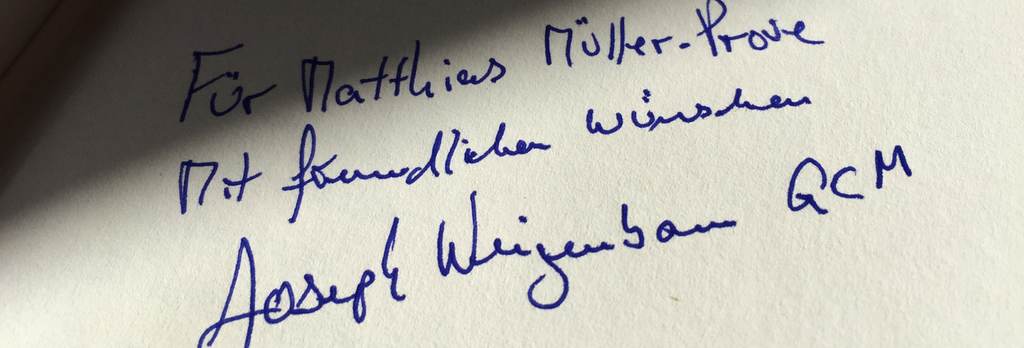 Für Matthias Müller-Prove
Mit freundlichen wünschen
Joseph Weizenbaum GCM